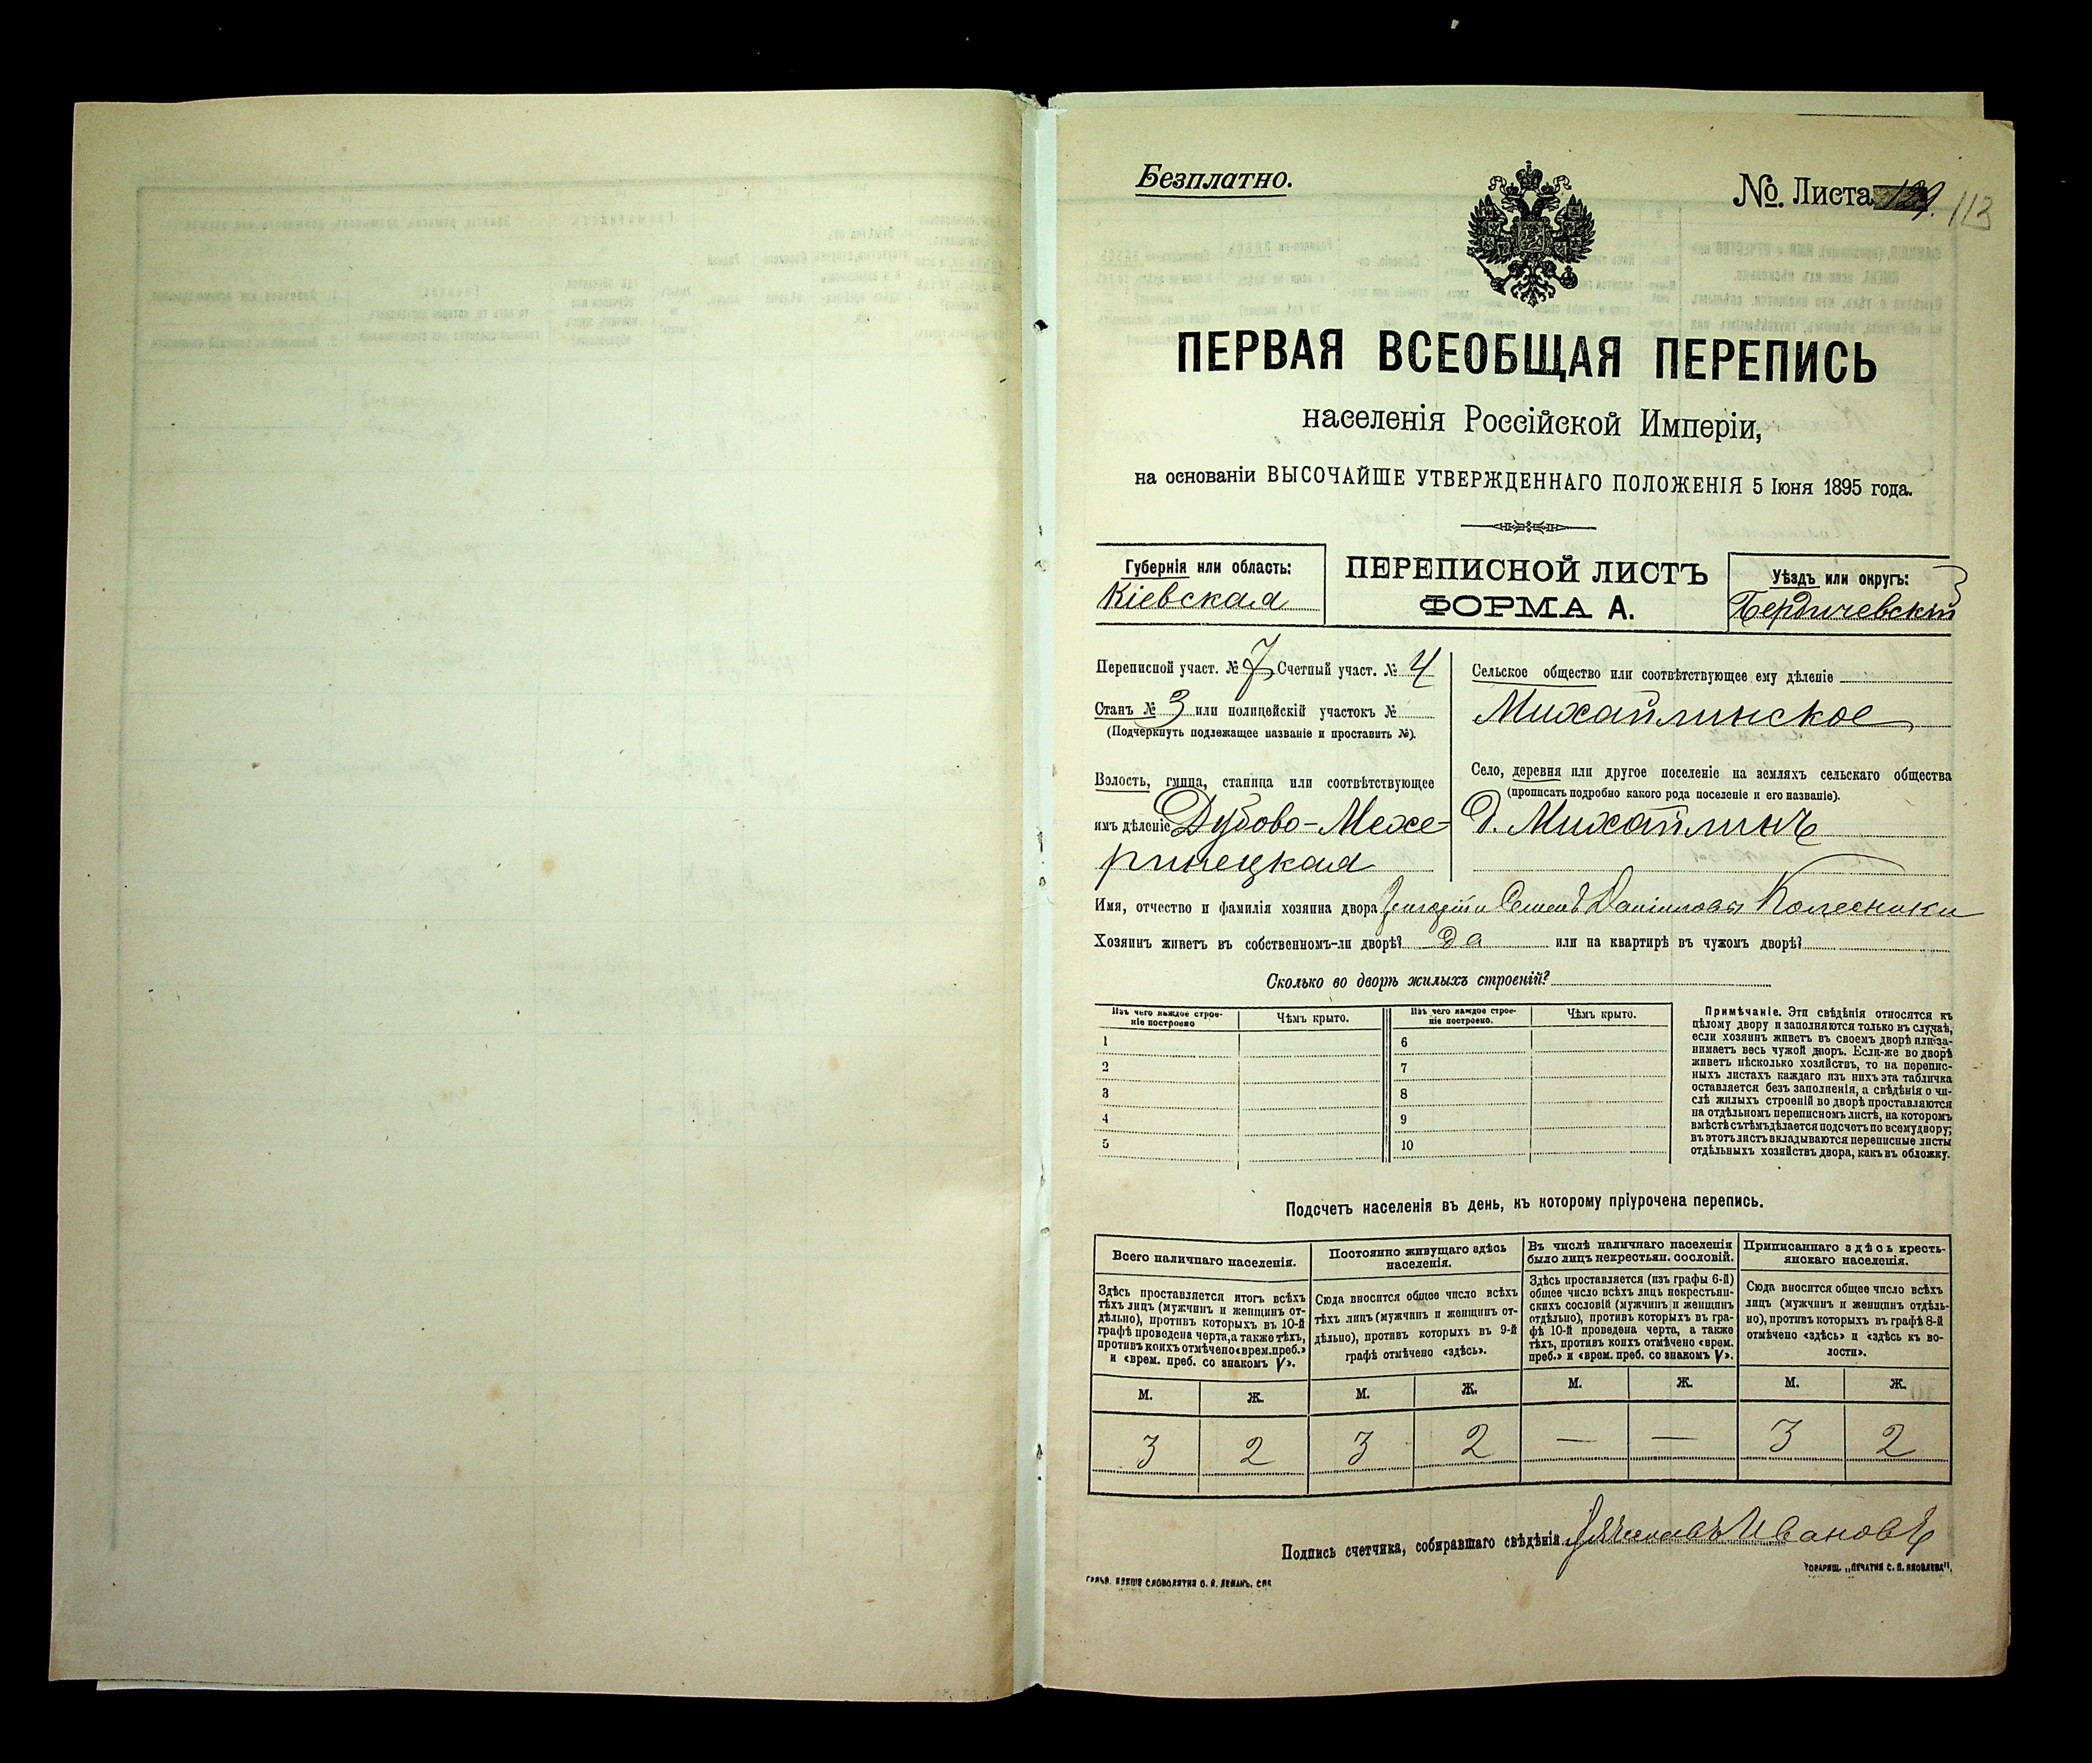 Безплатно.
№ Листа 129. 113
ПЕРВАЯ ВСЕОБЩАЯ ПЕРЕПИСЬ
населенія Россійской Имперіи,
на основаніи ВЫСОЧАЙШЕ УТВЕРЖДЕННАГО ПОЛОЖЕНІЯ 5 Іюня 1895 года.
Губернія или область:
Кіевская
ПЕРЕПИСНОЙ ЛИСТЪ
ФОРМА А.
Уѣздъ или округъ:
Бердичевскій
Переписной участ. № 7 Счетный участ. № 4
Станъ № 3 или полицейскій участокъ №
(Подчеркнуть подлежащее названіе и проставить №).
Волость, гмина, станица или соотвѣтствующее
имъ дѣленіе Дубово-Меже-
ринецкая
Сельское общество или соотвѣтствующее ему дѣленіе
Михайлинское
Село, деревня или другое поселеніе на земляхъ сельскаго общества
(прописать подробно какого рода поселеніе и его названіе).
д. Михайлинъ
Имя, отчество и фамилія хозяина двора Григорій и Семенъ Даниловы Колесники
Хозяинъ живетъ въ собственномъ-ли дворѣ? да или на квартирѣ въ чужомъ дворѣ?
Сколько во дворѣ жилыхъ строеній?
Изъ чего каждое строе-
ніе построено
Чѣмъ крыто.
Изъ чего каждое строе-
ніе построено.
Чѣмъ крыто.
1 6
2 7
3 8
4 9
5 10
Примѣчаніе. Эти свѣдѣнія относятся къ
цѣлому двору и заполняются только въ случаѣ,
если хозяинъ живетъ въ своемъ дворѣ или за-
нимаетъ весь чужой дворъ. Если-же во дворѣ
живетъ нѣсколько хозяйствъ, то на перепис-
ныхъ листахъ каждаго изъ нихъ эта табличка
оставляется безъ заполненія, а свѣдѣнія о чи-
слѣ жилыхъ строеній во дворѣ проставляются
на отдѣльномъ переписномъ листѣ, на которомъ
вмѣстѣ съ тѣмъ дѣлается подсчетъ по всему двору;
въ этотъ листъ вкладываются переписные листы
отдѣльныхъ хозяйствъ двора, какъ въ обложку.
Подсчетъ населенія въ день, къ которому пріурочена перепись.
Всего наличнаго населенія.
Здѣсь проставляется итогъ всѣхъ
тѣхъ лицъ (мужчинъ и женщинъ от-
дѣльно), противъ которыхъ въ 10-й
графѣ проведена черта, а также тѣхъ,
противъ коихъ отмѣчено «врем. преб.»
и «врем. преб. со знакомъ V».
Постоянно живущаго здѣсь
населенія.
Сюда вносится общее число всѣхъ
тѣхъ лицъ (мужчинъ и женщинъ от-
дѣльно), противъ которыхъ въ 9-й
графѣ отмѣчено «здѣсь».
Въ числѣ наличнаго населенія
было лицъ некрестьян. сословій.
Здѣсь проставляется (изъ графы 6-й)
общее число всѣхъ лицъ некрестьян-
скихъ сословій (мужчинъ и женщинъ
отдѣльно), противъ которыхъ въ гра-
фѣ 10-й проведена черта, а также
тѣхъ, противъ коихъ отмѣчено «врем.
преб.» и «врем. преб. со знакомъ V».
Приписаннаго здѣсь кресть-
янскаго населенія.
Сюда вносится общее число всѣхъ
лицъ (мужчинъ и женщинъ отдѣль-
но), противъ которыхъ въ графѣ 8-й
отмѣчено «здѣсь» и «здѣсь къ во-
лости».
М. Ж. М. Ж. М. Ж. М. Ж.
3 2 3 2 — — 3 2
Подпись счетчика, собиравшаго свѣдѣнія Ивановъ
ТОВАРИЩ. „ПЕЧАТНЯ С. П. ЯКОВЛЕВА".
СЛОВОЛИТНЯ О. И. ЛЕМАНЪ, СПБ